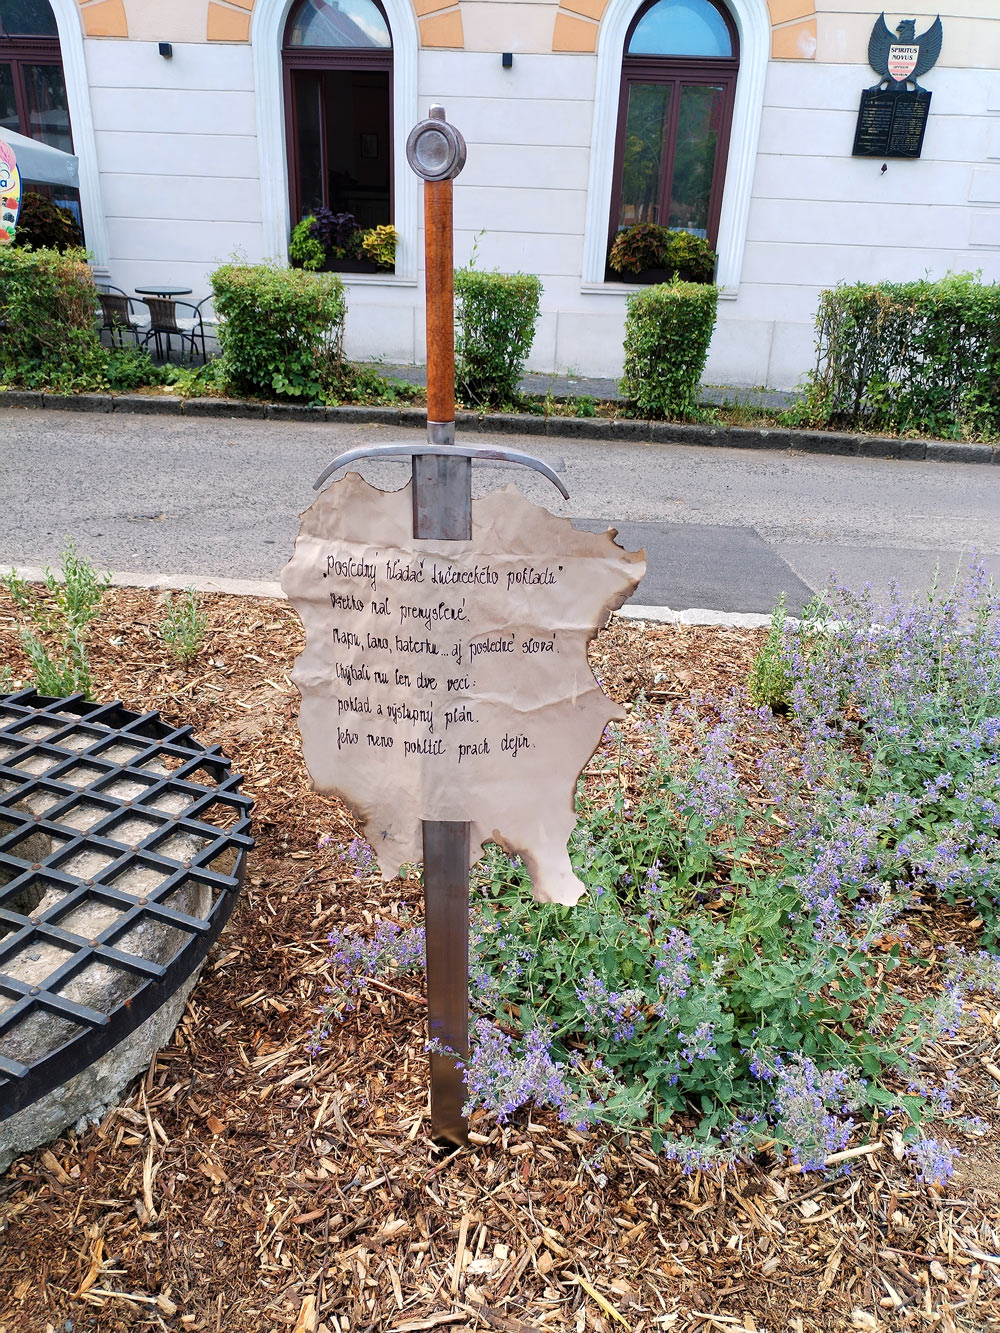 SPIRITUS
NOVUS
„Posledný hľadač Lučeneckého pokladu"
Všetko mal premyslené.
Mapu, lano, baterku... aj posledné slová.
Chýbali mu len dve veci:
poklad a výstupný plán.
Jeho meno pohltil prach dejín.